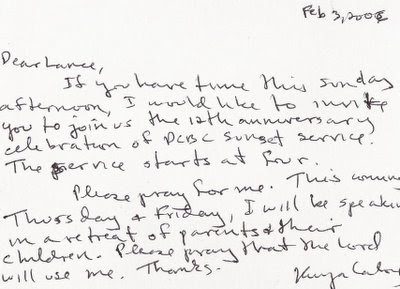 Feb 3, 200
Dear Lance,
If you have time this sunday
afternoon, I would like to invite
you to join us the 12th anniversary
celebration of DCBC sunset service.
The service starts at four.
Please pray for me. This coming
Thursday & Friday, I will be speakin
in a retreat of parents & their
children. Please pray that the Lord
will use me. Thanks.